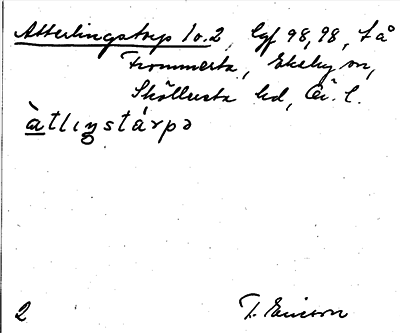 Atterlingstorp 1 o. 2, lgf 98, 98, f å
Frommesta, Ekeby sn,
Sköllersta hd, Ör. l.
àtliŋstárpə
2
T. Ericson